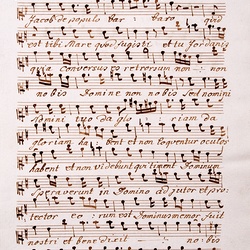 Jacob de populo bar baro quid
est tibi Mare quod fugisti et tu Jordanis
quia conversus es retrorsum non non
nobis Domine non nobis sed nomini
Nomini tuo da glo riam da
gloriam habent et non loquentur oculos
habent et non videbunt qui timent Dominum
speraverunt in Domino adjutor et pro
tector eorum est Dominus memor fuit
nostri et bene dixit nobis